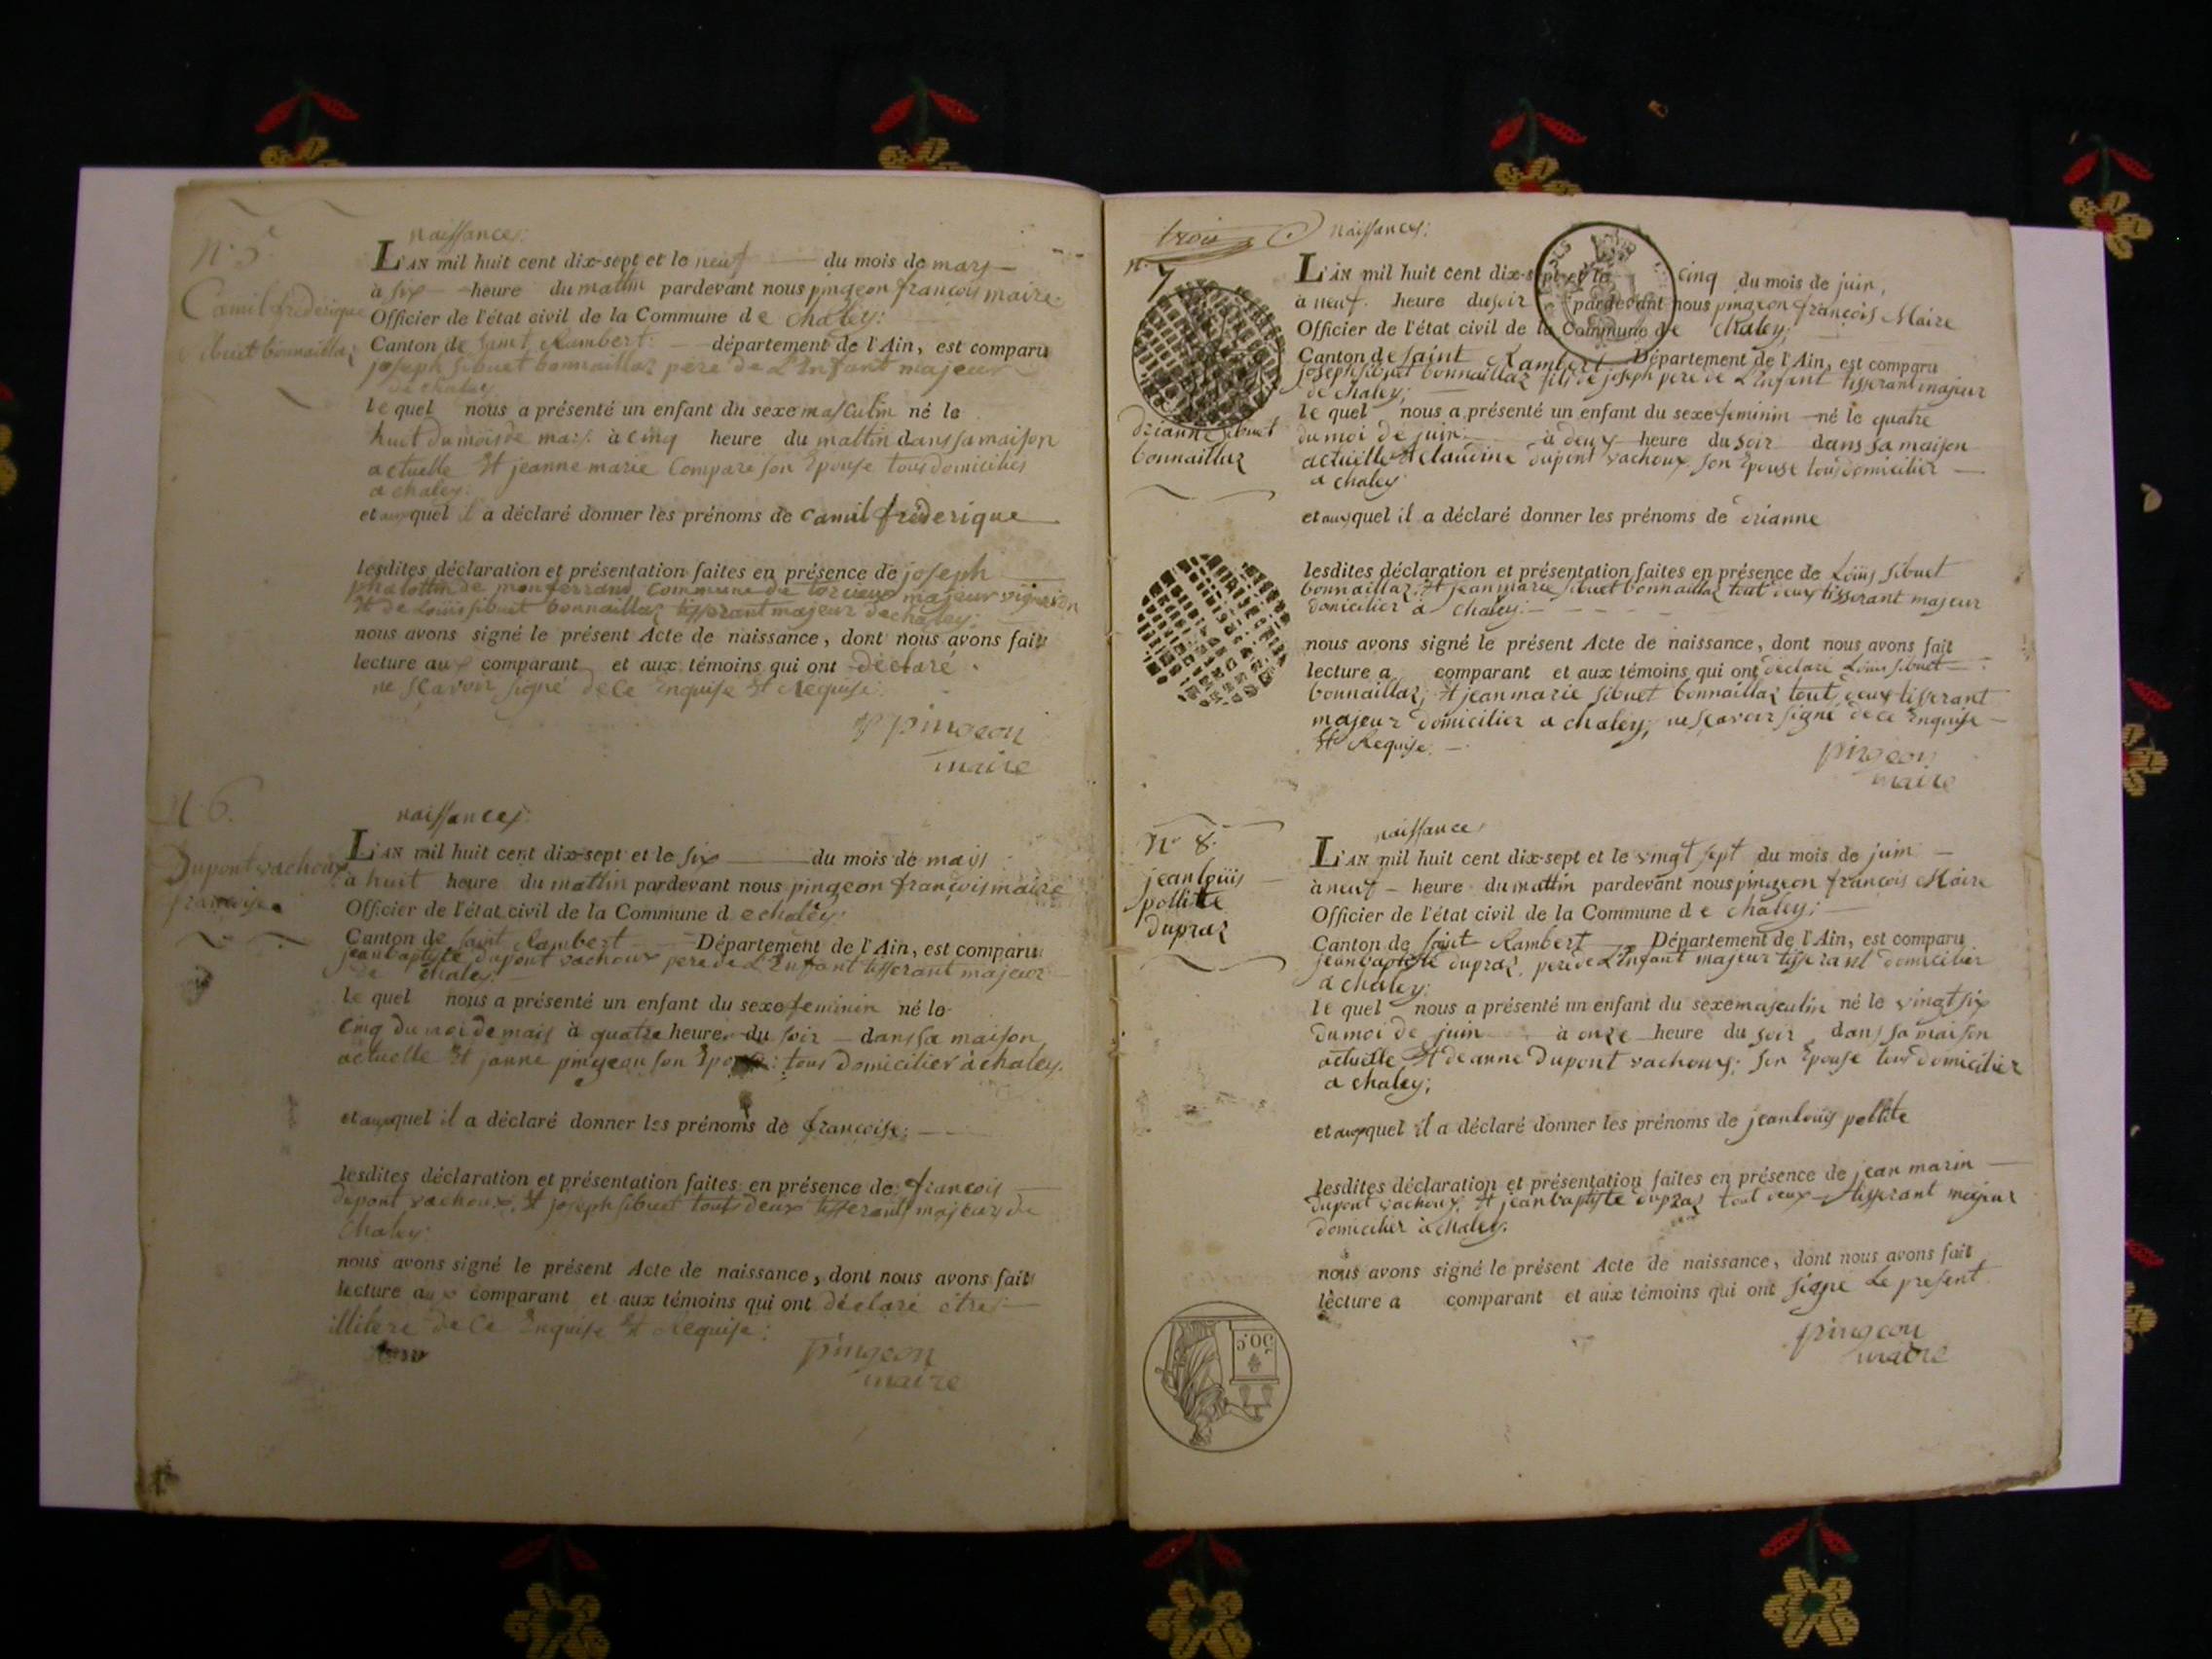 naissances;
N. 5
L'AN mil huit cent dix-sept et le neuf du mois de mars
à six heure du mattin pardevant nous pingeon françois maire.
Camil fréderique
Officier de l'état civil de la Commune de Chaley:
sibuet bonnaillaz
Canton de saint Rambert: département de l'Ain, est comparu
joseph sibuet bonnaillaz pere de L'Enfant majeur
de chaley
le quel nous a présenté un enfant du sexe masculin né le
huit du mois de mars à cinq heure du mattin dans sa maison
actuelle Et jeanne marie Compare son Epouse tous domiciliés
a chaley:
et auquel il a déclaré donner les prénoms de camil fréderique
lesdites déclaration et présentation faites en présence de joseph
de montferrand Commune de torcieux majeur vigneron
Et de Loüis sibuet bonnaillaz tisserant majeur de chaley;
nous avons signé le présent Acte de naissance, dont nous avons fait
lecture au comparant et aux témoins qui ont déclaré
ne sçavoir signé de Ce Enquise Et Requise:
pingeon
maire
N. 6.
naissances;
Dupont vachoux
françoise
L'AN mil huit cent dix-sept et le six du mois de mais
a huit heure du mattin pardevant nous pingeon françois maire
Officier de l'état civil de la Commune de chaley:
Canton de saint Rambert Département de l'Ain, est comparu
jean baptiste dupont vachoux pere de L'Enfant tisserant majeur
de chaley.
le quel nous a présenté un enfant du sexe feminin né le
cinq du moi de mais à quatre heure du soir dans sa maison
actuelle Et janne pingeon son : tous domicilier à chaley.
et auquel il a déclaré donner les prénoms de françoise;
lesdites déclaration et présentation faites en présence de françois
dupont vachoux, Et joseph sibuet touts deux tisserants majeur de
Chaley
nous avons signé le présent Acte de naissance, dont nous avons fait
lecture au comparant et aux témoins qui ont déclaré étre
illitere de Ce Enquise Et Requise:
pingeon
maire
trois
naissances;
n. 7
L'AN mil huit cent dix-sept et le cinq du mois de juin,
à neuf. heure du soir pardevant nous pingeon françois Maire
Officier de l'état civil de la Commune de chaley;
Canton de saint Rambert Département de l'Ain, est comparu
joseph sibuet bonnaillaz fils de joseph pere de L'Enfant tisserant majeur
de chaley;
drianne sibuet
bonnaillaz
le quel nous a présenté un enfant du sexe feminin né le quatre
du moi de juin à deux heure du soir dans sa maison
actuelle Et claudine dupont vachoux son Epouse tous domicilier
a chaley
et auquel il a déclaré donner les prénoms de drianne
lesdites déclaration et présentation faites en présence de Loüis sibuet
bonnaillaz, Et jean marie sibuet bonnaillaz tout deux tisserant majeur
domicilier à Chaley:
nous avons signé le présent Acte de naissance, dont nous avons fait
lecture a comparant et aux témoins qui ont déclaré Loüis sibuet
bonnaillaz, Et jean marie sibuet bonnaillaz tout deux tisserant
majeur domicilier a chaley; ne sçavoir signé de ce Enquise
Et Requise.
pingeon
maire
N. 8.
jean loüis
pollitte
dupraz
naissance
L'AN mil huit cent dix-sept et le vingt sept du mois de juin
à neuf heure du mattin pardevant nous pingeon françois Maire
Officier de l'état civil de la Commune de chaley;
Canton de saint Rambert Département de l'Ain, est comparu
jean baptiste dupraz, pere de L'Enfant majeur tisserant domicilier
a chaley;
le quel nous a présenté un enfant du sexe masculin né le vingt six
du moi de juin à onze heure du soir dans sa maison
actuelle Et de anne Dupont vachoux; son Epouse tous domicilier
a chaley;
et auquel il a déclaré donner les prénoms de jean loüis pollite
lesdites déclaration et présentation faites en présence de jean marin
dupont vachoux, Et jean baptiste dupraz tout deux tisserant majeur
domicilier à chaley.
nous avons signé le présent Acte de naissance, dont nous avons fait
lecture a comparant et aux témoins qui ont signé Le present
pingeon
maire
50 c